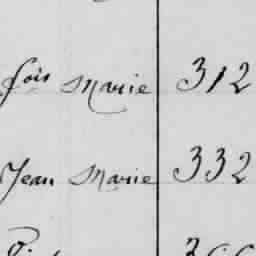 fois Marie 312
Jean Marie 332